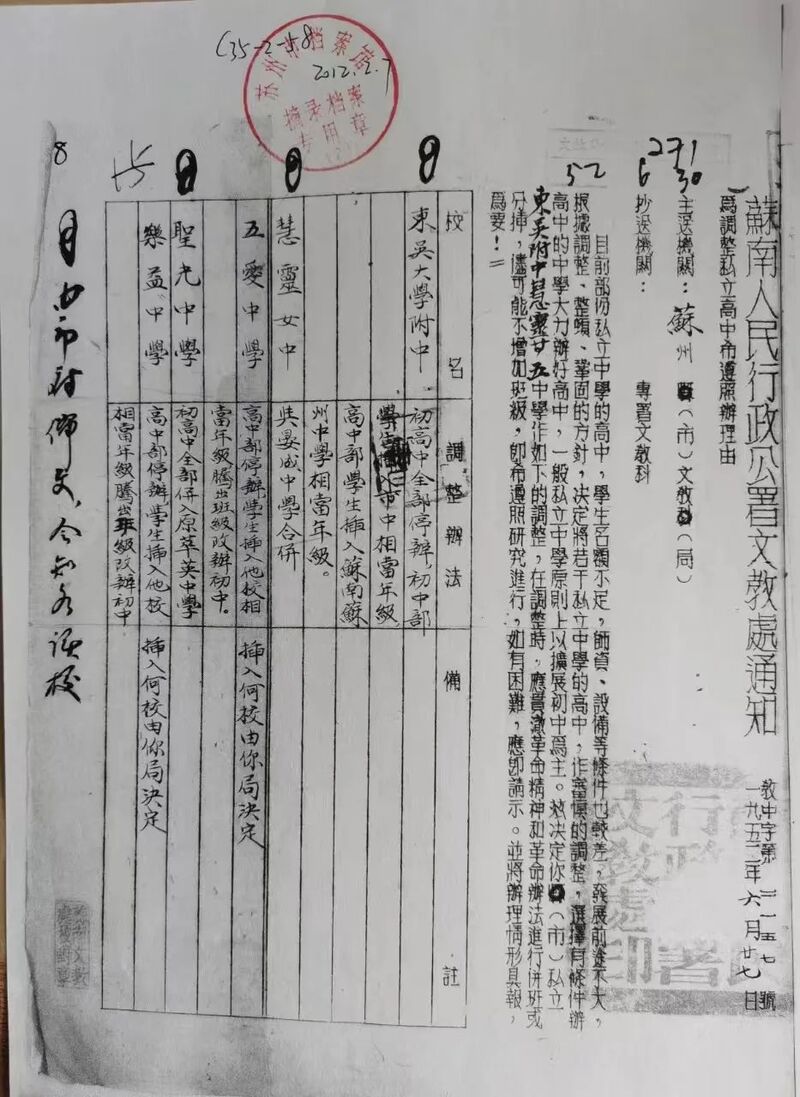 C35-2-58
2012.2.7
苏州市档案馆
摘录档案
专用章
蘇南人民行政公署文教處通知
教中字第三一五七號
一九五二年六月廿七日
為調整私立高中希遵照辦理由
主送機關：蘇州縣（市）文教科（局）
抄送機關：專署文教科
271
6 30
52
目前部份私立中學的高中，學生名額不足，師資、設備等條件也較差，發展前途不大，
根據調整、整頓、鞏固的方針，决定將若干私立中學的高中，作審慎的調整，選擇有條件辦
高中的中學大力辦好高中，一般私立中學原則上以擴展初中為主。兹决定你縣（市）私立
東吴附中慧靈廿五中學作如下的調整，在調整時，應貫澈革命精神和革命辦法進行併班或
分挿，儘可能不增加班級，即希遵照研究進行，如有困難，應即請示。並將辦理情形具報，
為要！
校名
調整辦法
備註
東吴大學附中
初高中全部停辦，初中部
學生 市中相當年級
高中部學生挿入蘇南蘇
州中學相當年級。
慧靈女中
與晏成中學合併
五愛中學
高中部停辦學生挿入他校相
當年級騰出班級改辦初中。
挿入何校由你局决定
聖光中學
初高中全部併入原萃英中學
樂益中學
高中部停辦學生挿入他校
相當年級騰出班級改辦初中
挿入何校由你局决定
8
令知各該校